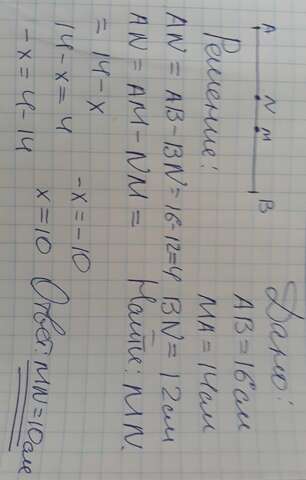 A N M B
Дано:
AB = 16 см
MA = 14 см
BN = 12 см
Найти: MN.
Решение:
AN = AB - BN = 16 - 12 = 4
AN = AM - NM =
= 14 - x
14 - x = 4
- x = 4 - 14
- x = - 10
x = 10
Ответ: MN = 10 см